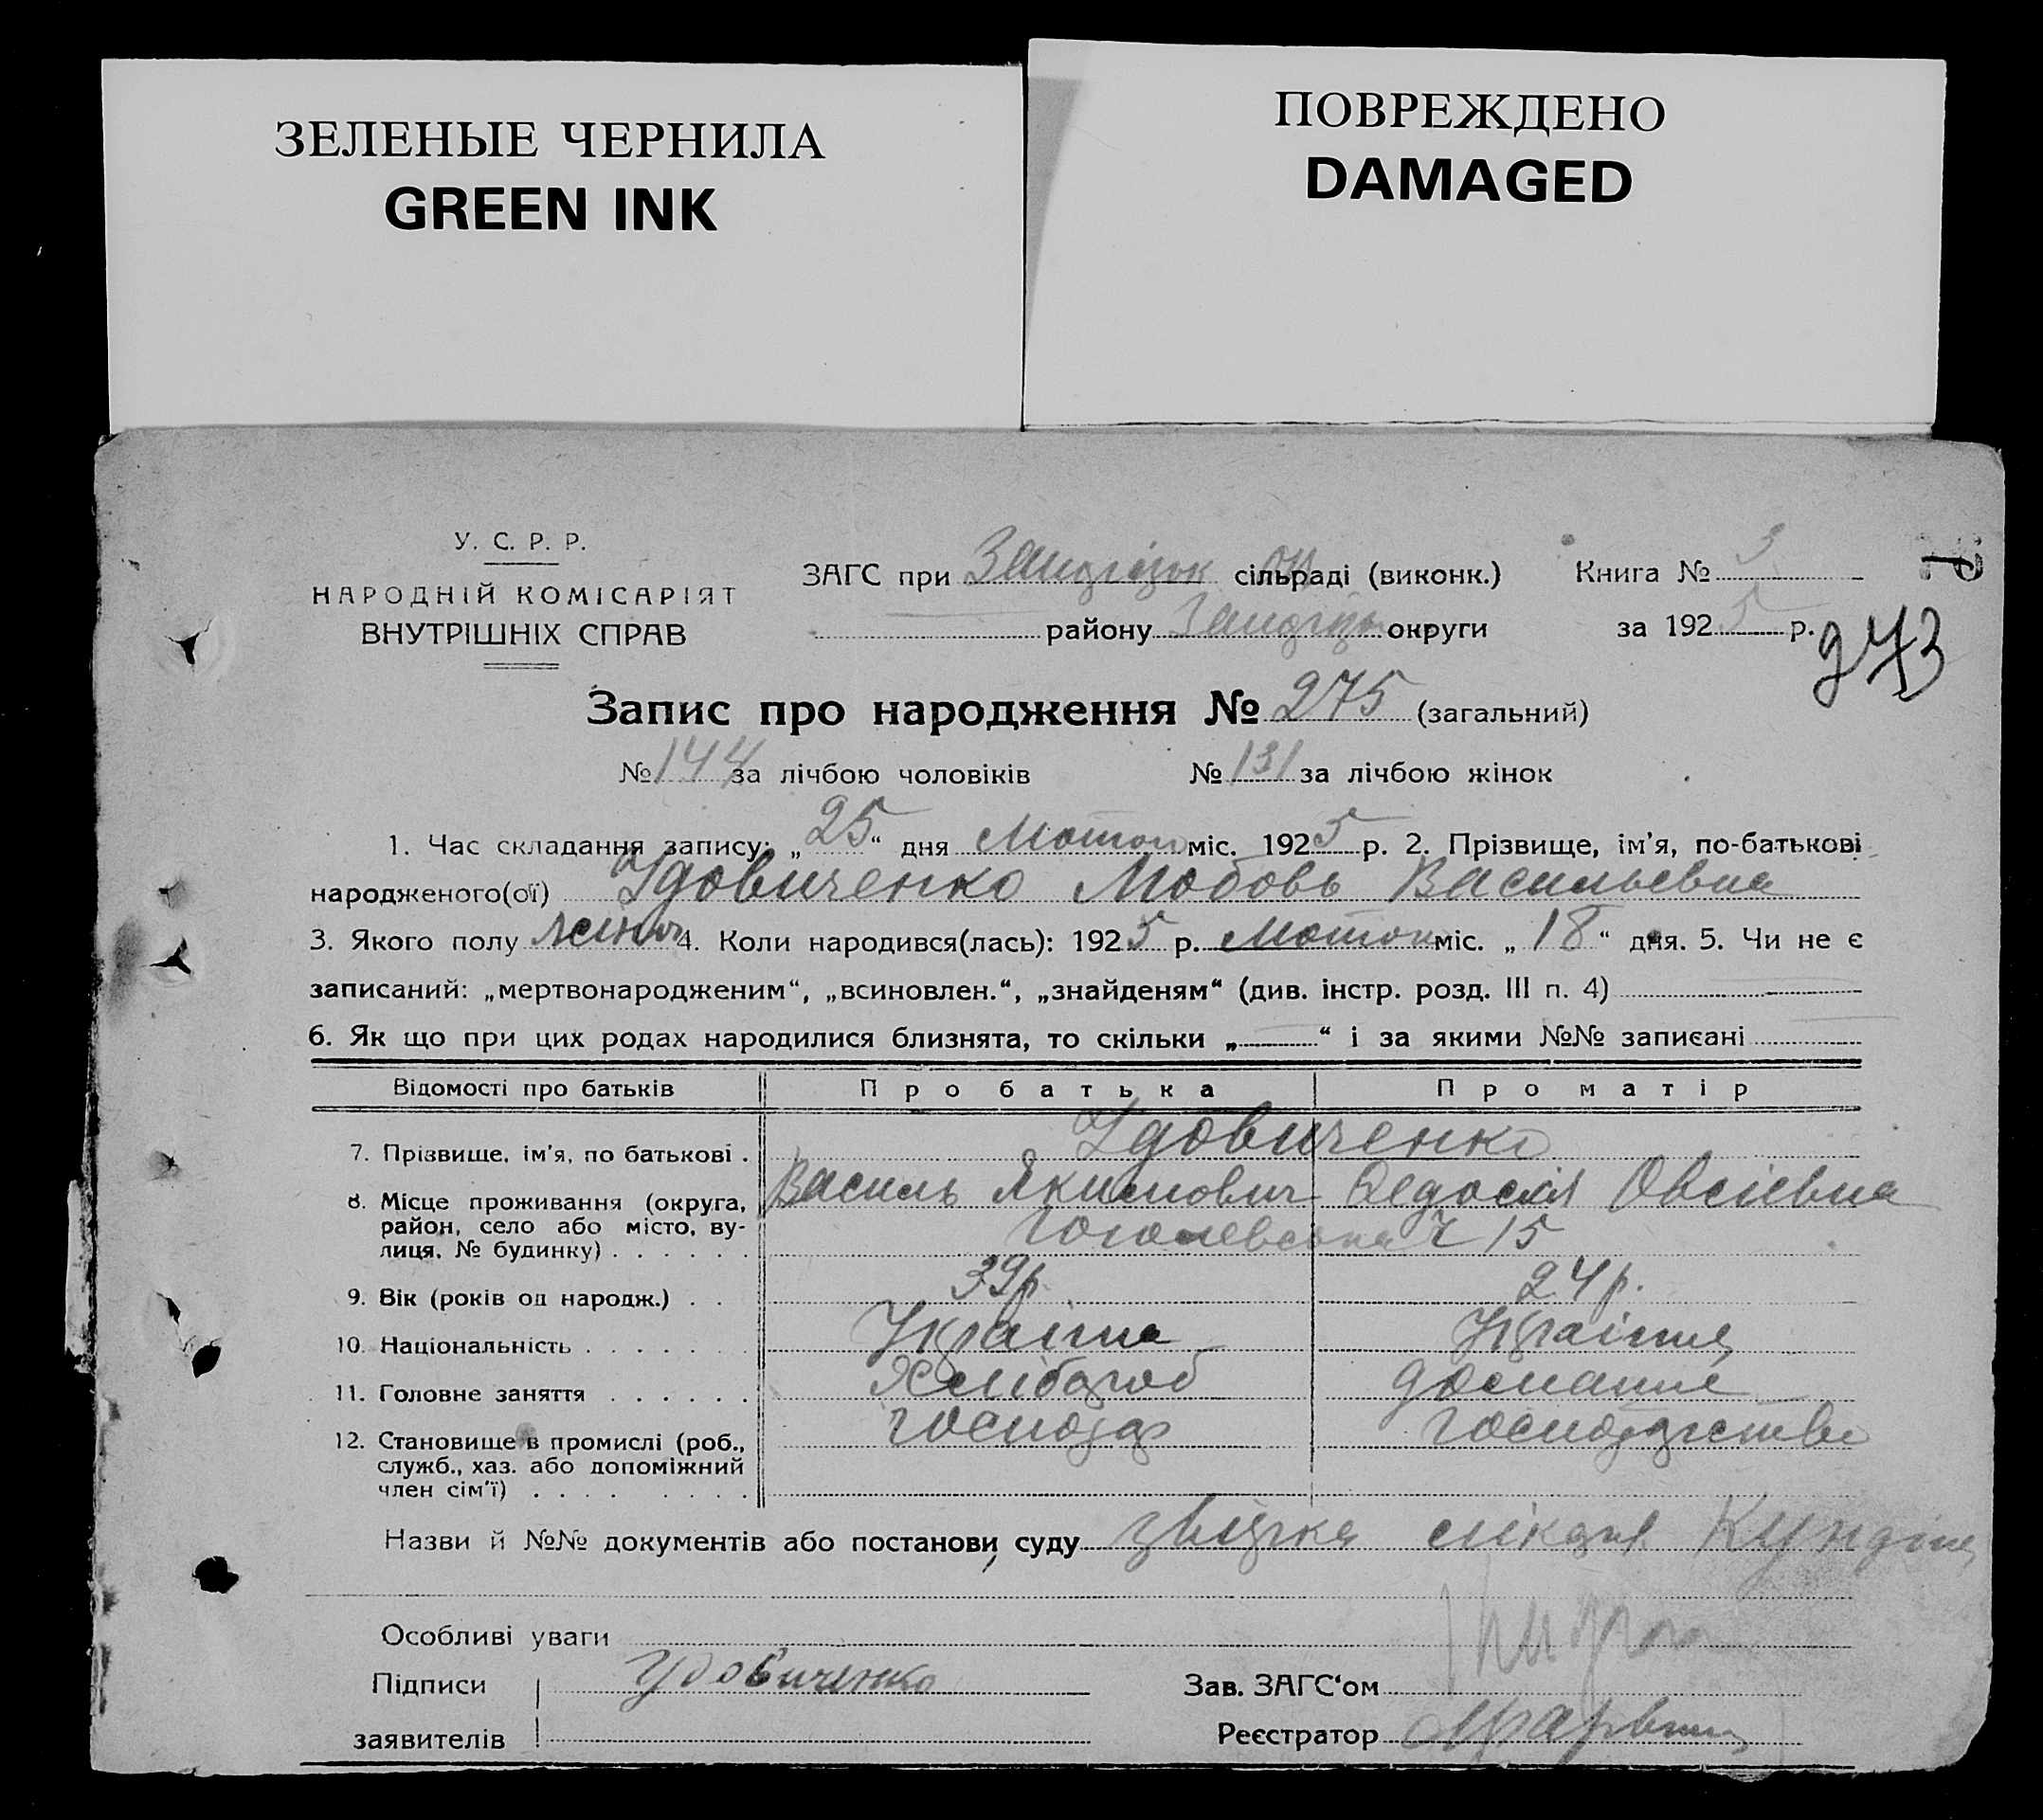 ЗЕЛЕНЫЕ ЧЕРНИЛА
GREEN INK
ПОВРЕЖДЕНО
DAMAGED
У. С. Р. Р.
НАРОДНІЙ КОМІСАРІЯТ
ВНУТРІШНІХ СПРАВ
ЗАГС при сільраді (виконк.)
Книга № 3
району округи
за 1925 р.
273
Запис про народження № 275 (загальний)
№ 144 за лічбою чоловіків № 131 за лічбою жінок
1. Час складання запису: „ 25 “ дня Лютого міс. 1925 р. 2. Прізвище, ім'я, по-батькові
народженого(ої) Удовиченко Любовь Васильевна
3. Якого полу 4. Коли народився(лась): 1925 р. Лютого міс. „ 18 “ дня. 5. Чи не є
записаний: „мертвонародженим“, „всиновлен.“, „знайденям“ (див. інстр. розд. III п. 4)
6. Як що при цих родах народилися близнята, то скільки „ “ і за якими №№ записані
Відомості про батьків Про батька Про матір
7. Прізвище, ім'я, по батькові . Удовиченко
Василь Якимович Федосія Овсіевна
8. Місце проживання (округа,
район, село або місто, ву-
лиця, № будинку) . . . . . . 15
9. Вік (років од народж.) . . 39р. 24р.
10. Національність . . . . . . .
11. Головне заняття . . . . . . Хлібороб домашнє
господар господарство
12. Становище в промислі (роб.,
служб., хаз. або допоміжний
член сім'ї) . . . . . . . .
Назви й №№ документів або постанови, суду
Особливі уваги
Підписи Удовиченко
заявителів
Зав. ЗАГС‘ом
Реєстратор